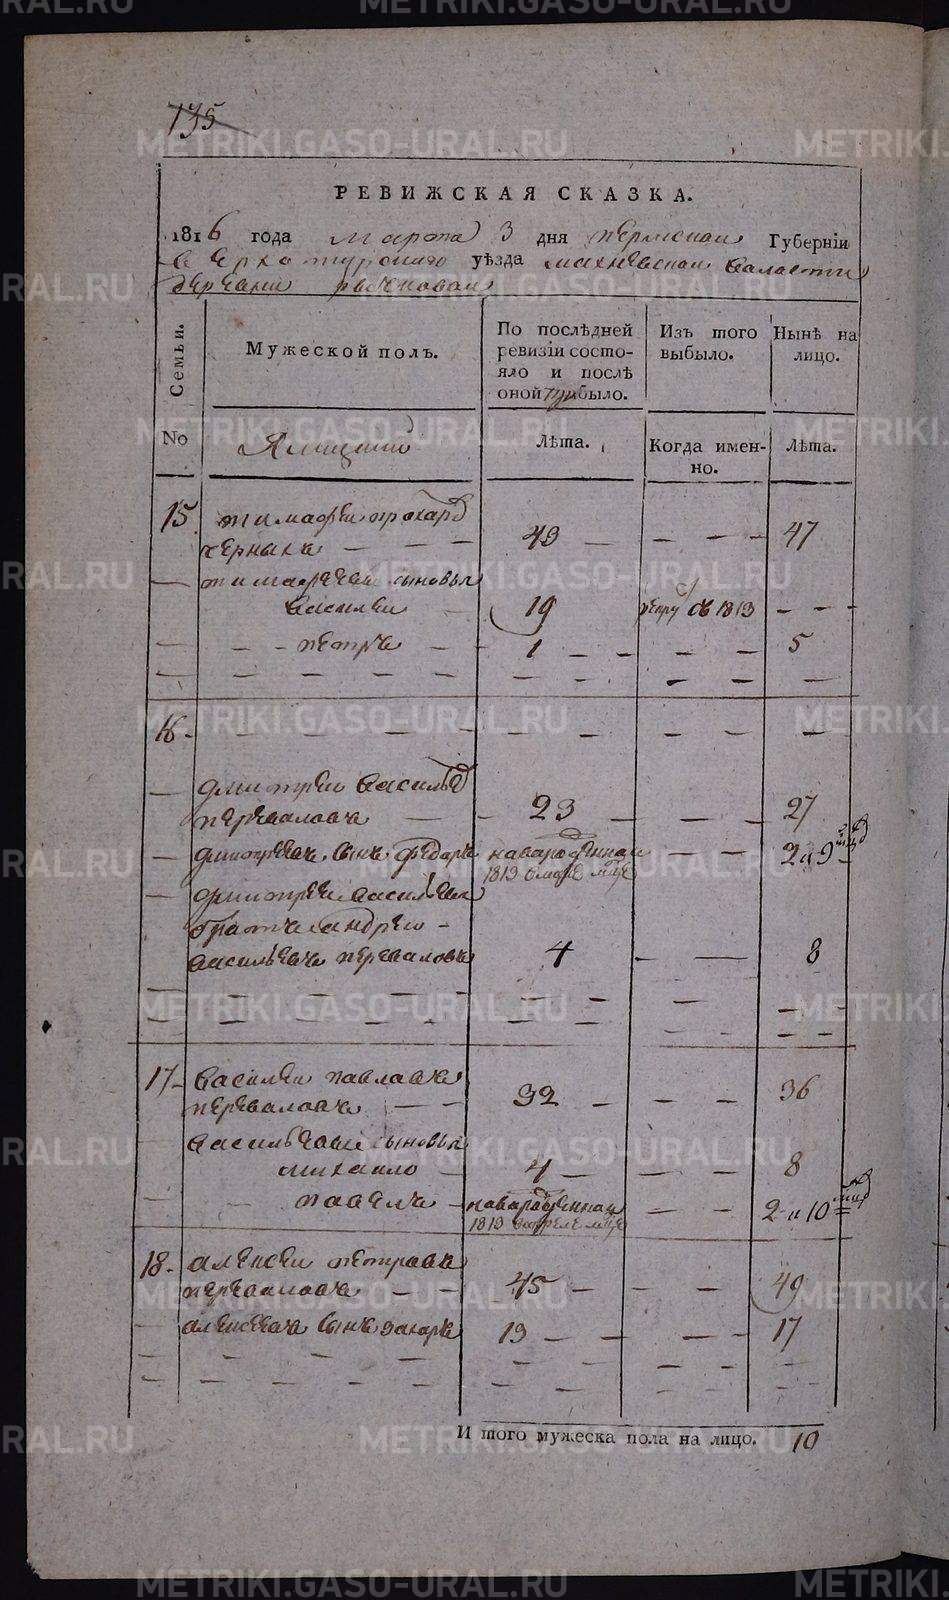 135
РЕВИЖСКАЯ СКАЗКА.
1816 года марта 3 дня пермскои Губерніи
верхотурскаго уѣзда махневскои валасти
деревни
Семьи.
Мужеской полъ.
По послѣдней ревизіи состояло и послѣ оной прибыло.
Изъ того выбыло.
Нынѣ на лицо.
No
Ямщики
Лѣта.
Когда именно.
Лѣта.
15 тимафеи прохаров
черныхъ — — — 43 — — — — 47
— тимафеевы сыновья
василеи — 19 рекру съ 1813 — — —
— — — петръ — — 1 — — — — 5
16 — — — — — — — — — —
— дмитреи васильев
перевалавъ — — 23 — — — 27
— дмитреевъ сынъ федаръ наварожденнаи — — 2 и 9 мцов
1813 мцѣ
— дмитреи васильева
братъ андреи —
васильевъ переваловъ 4 — — 8
17 — василеи павлавъ
перевалавъ — — 32 — — — 36
васильевы сыновья
михаило — 4 — — — 8
— — павелъ — наварожденнаи — — 2 и 10 мцов
1813 мцѣ
18 — алексеи петравъ
перевалавъ — — 45 — — — 49
— алексеевъ сынъ захаръ 13 — — — — 17
И того мужеска пола на лицо. 10
METRIKI.GASO-URAL.RU